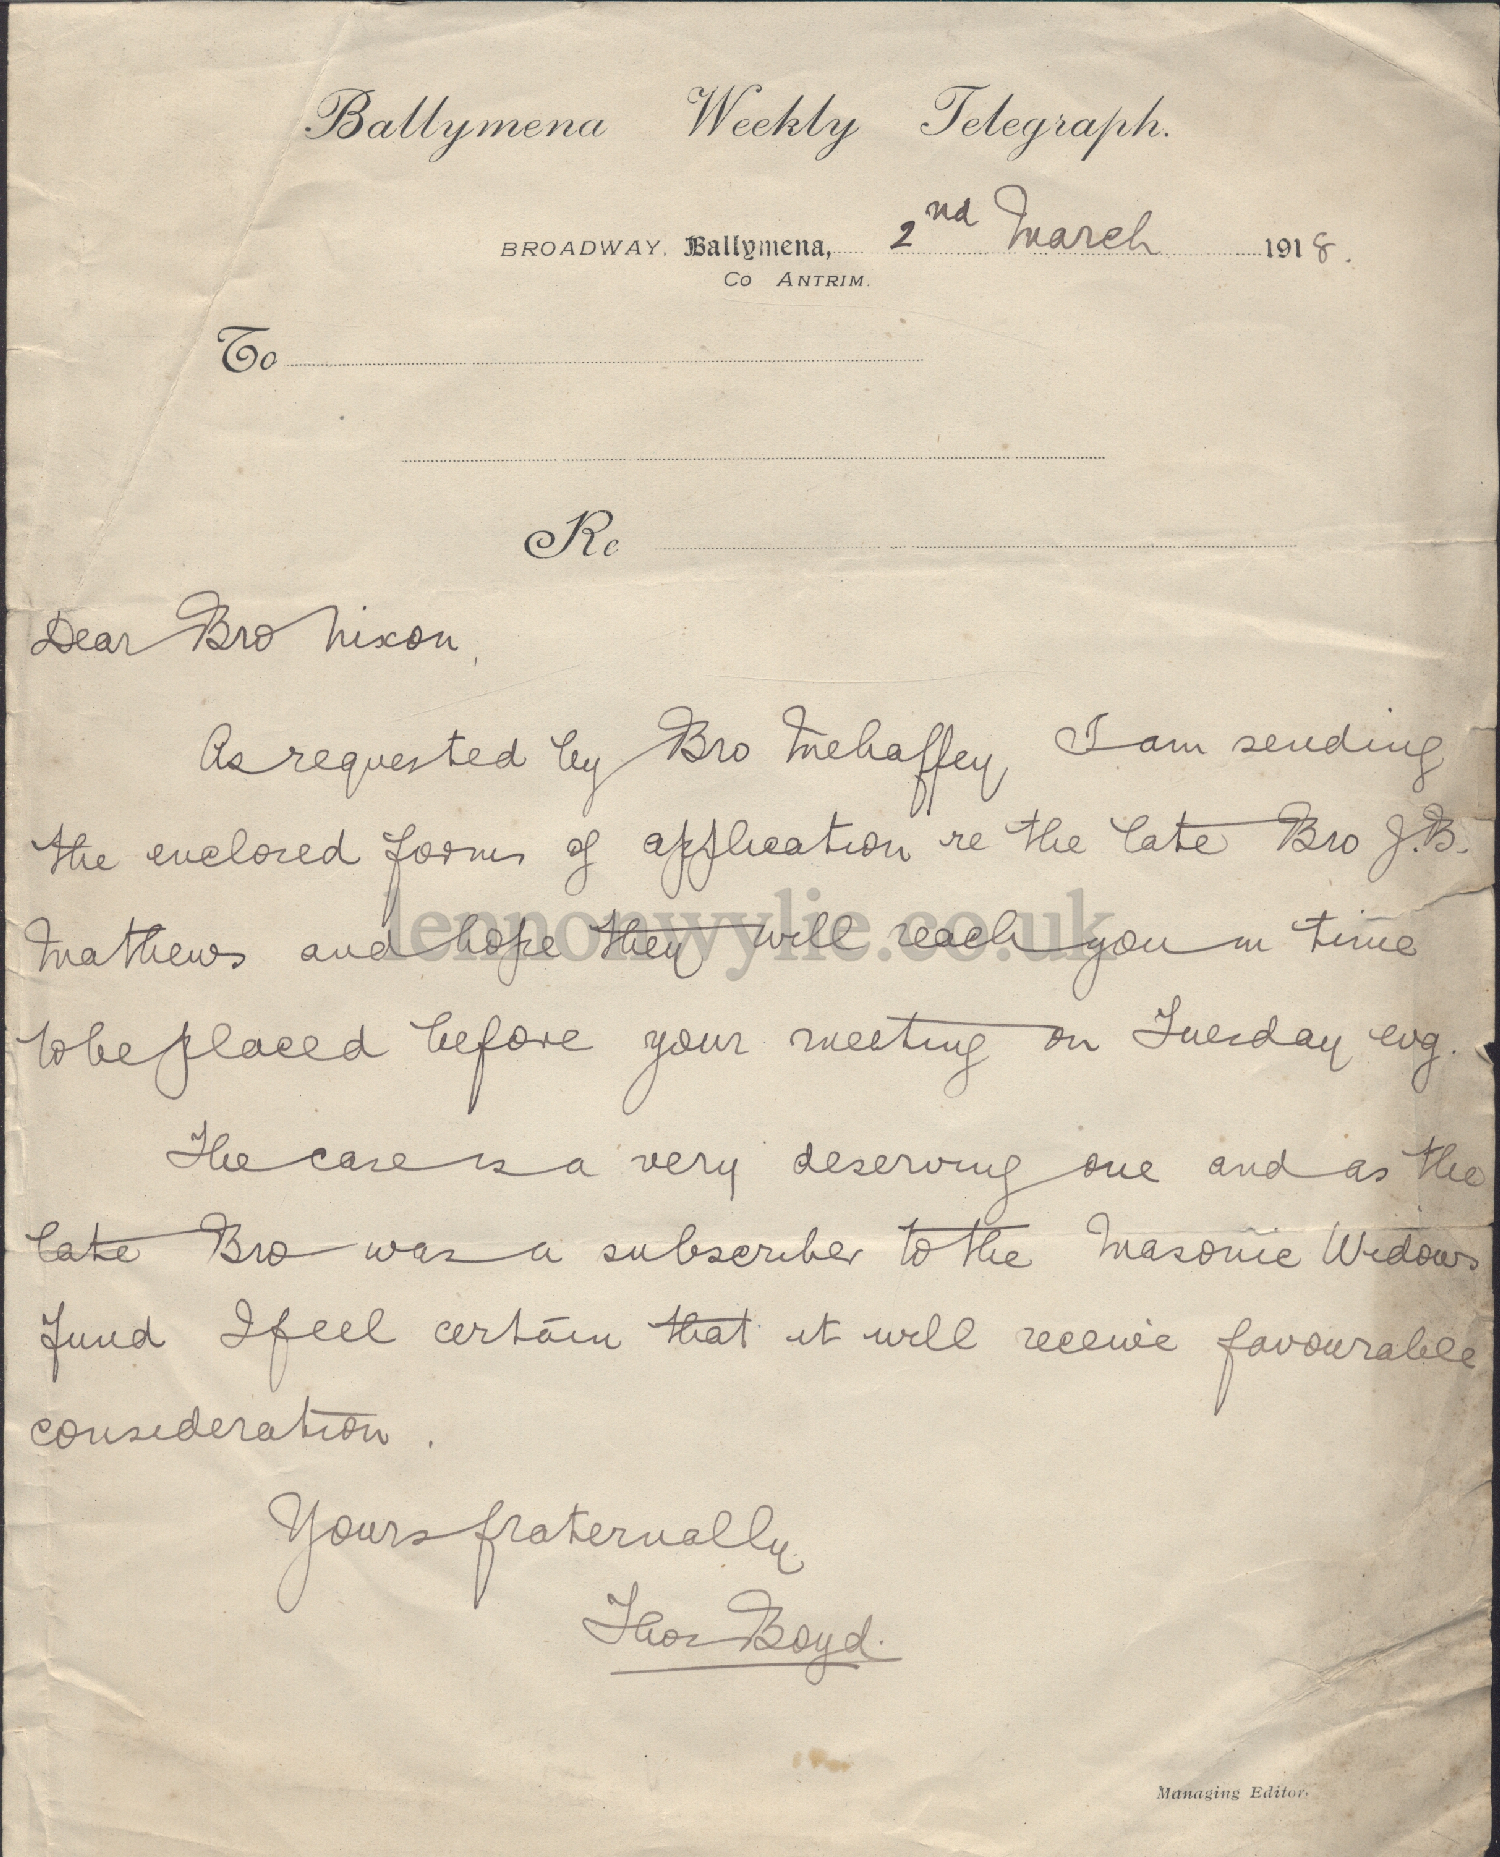 Ballymena Weekly Telegraph.
BROADWAY, Ballymena, 2nd March 1918.
Co ANTRIM.
To
Re
Dear Bro Nixon,
As requested by Bro Mehaffey, I am sending
the enclosed forms of application re the late Bro J.B.
Mathews and hope they will reach you in time
lennonwylie.co.uk
to be placed before your meeting on Tuesday evg.
The case is a very deserving one and as the
late Bro was a subscriber to the Masonic Widows
fund I feel certain that it will receive favourable
consideration.
Yours fraternally
Thos Boyd.
Managing Editor.